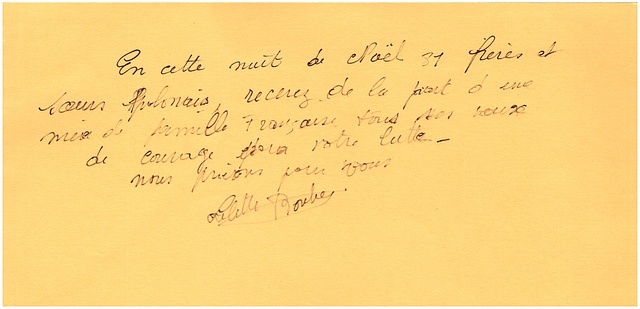 En cette nuit de Noël 31 frères et
sœurs Polonais, recevez de la part d'une
mère de famille Française tous ses vœux
de courage pour votre lutte –
nous prions pour vous